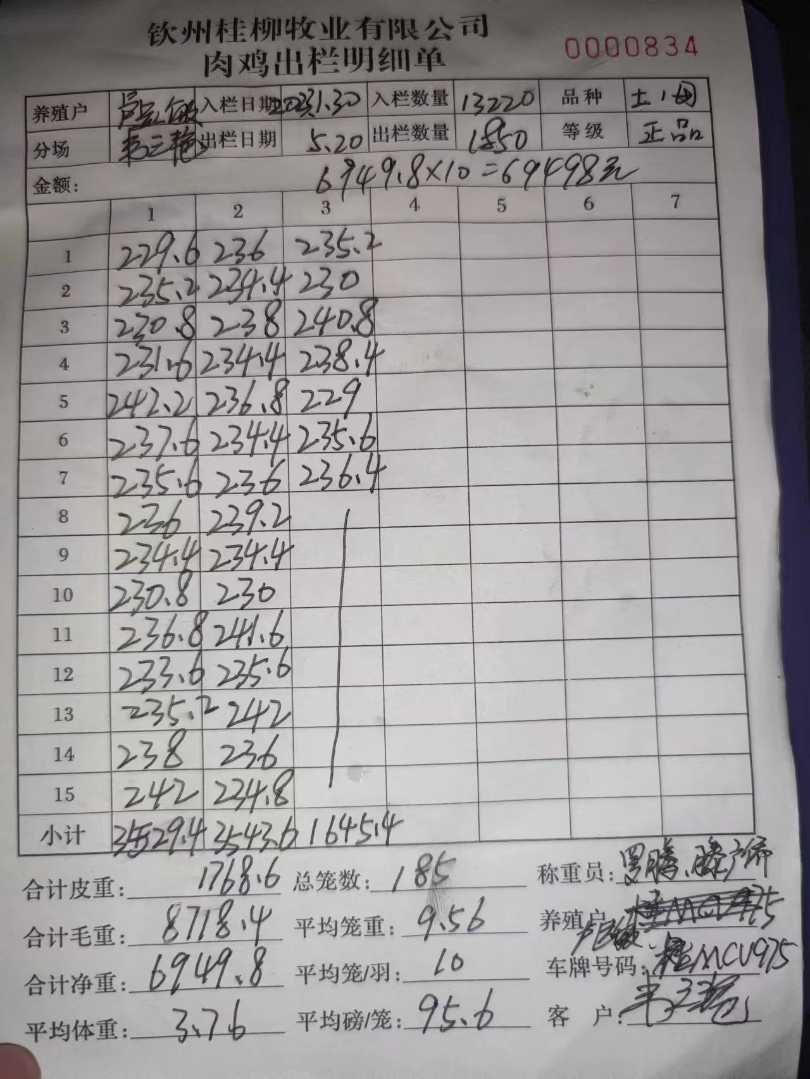 钦州桂柳牧业有限公司
肉鸡出栏明细单 0000834
养殖户 入栏日期 2023.1.30 入栏数量 13220 品种 土1母
分场 韦三艳 出栏日期 5.20 出栏数量 1850 等级 正品
金额: 6949.8×10=69498元
1 2 3 4 5 6 7
1 229.6 236 235.2
2 235.2 234.4 230
3 230.8 238 240.8
4 231.6 234.4 238.4
5 242.2 236.8 229
6 237.6 234.4 235.6
7 235.6 236 236.4
8 236 239.2
9 234.4 234.4
10 230.8 230
11 236.8 241.6
12 233.6 235.6
13 235.2 242
14 238 236
15 242 234.8
小计 3529.4 3543.6 1645.4
合计皮重: 1768.6 总笼数: 185 称重员: 罗腾、
合计毛重: 8718.4 平均笼重: 9.56 养殖户:
合计净重: 6949.8 平均笼/羽: 10 车牌号码: 桂MCU975
平均体重: 3.76 平均磅/笼: 95.6 客 户: 韦三艳